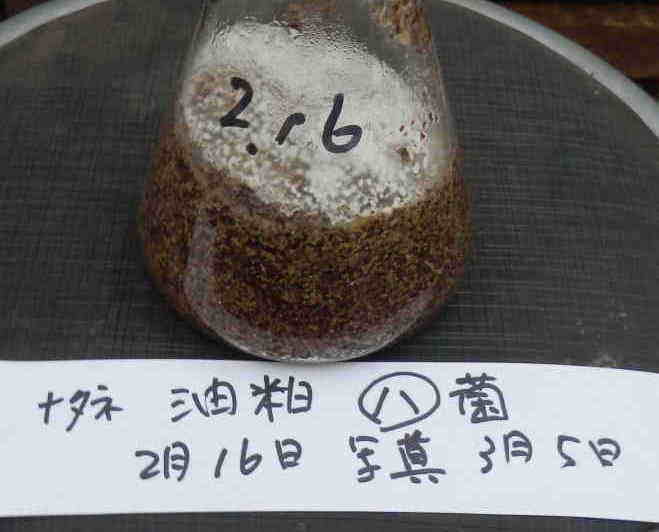 2.r6
ナタネ 油粕 ㋩菌
2月16日 写真 3月5日